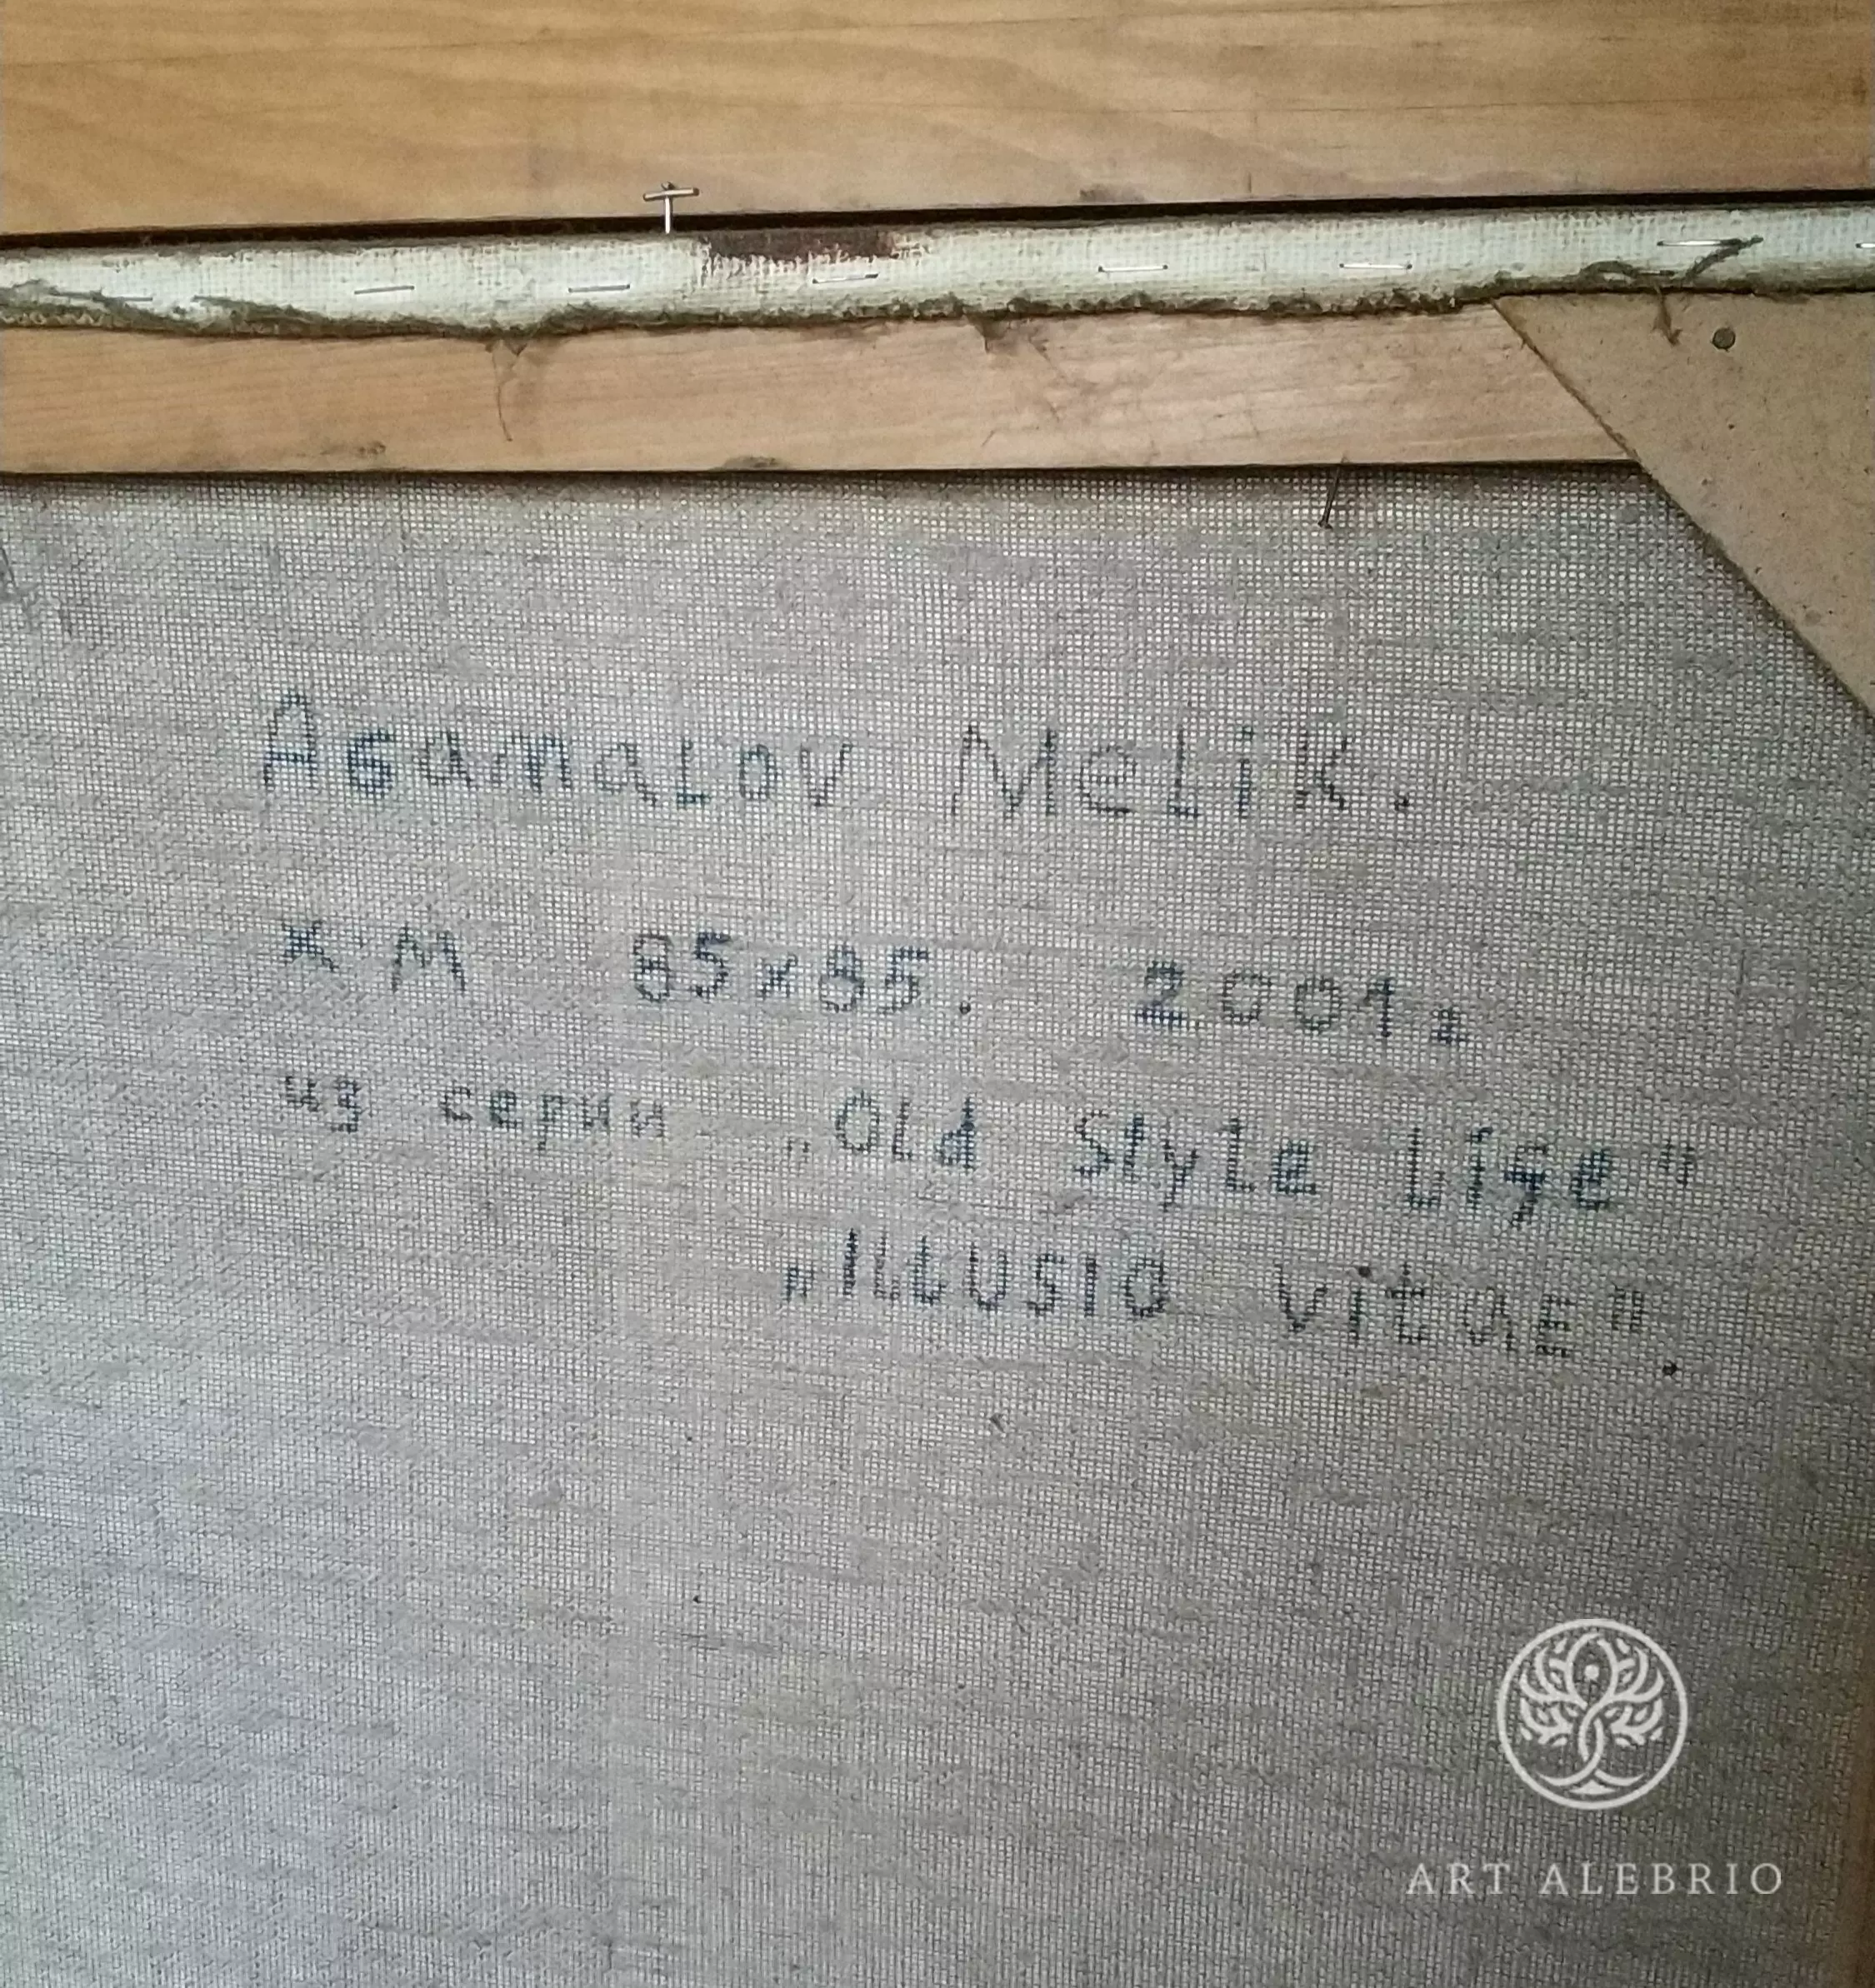 Agamalov Melik.
х м 85x85. 2001.
из серии „Old Style Life"
„Illusio vitae".
ART ALEBRIO